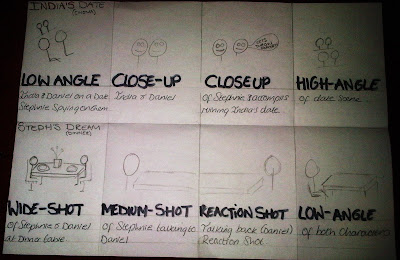 INDIA'S DATE
LOW ANGLE
India & Daniel on a Date
Stephnie Spying on them
CLOSE-UP
India & Daniel
CLOSEUP
of Stephnie & attempts
ruining India's date
HIGH-ANGLE
of date scene
STEPH'S DREAM
(DINNER)
WIDE-SHOT
of Stephnie & Daniel
at Dinner table
MEDIUM-SHOT
of Stephnie talking to
Daniel
REACTION SHOT
Talking back (Daniel)
Reaction Shot
LOW-ANGLE
of both Characters